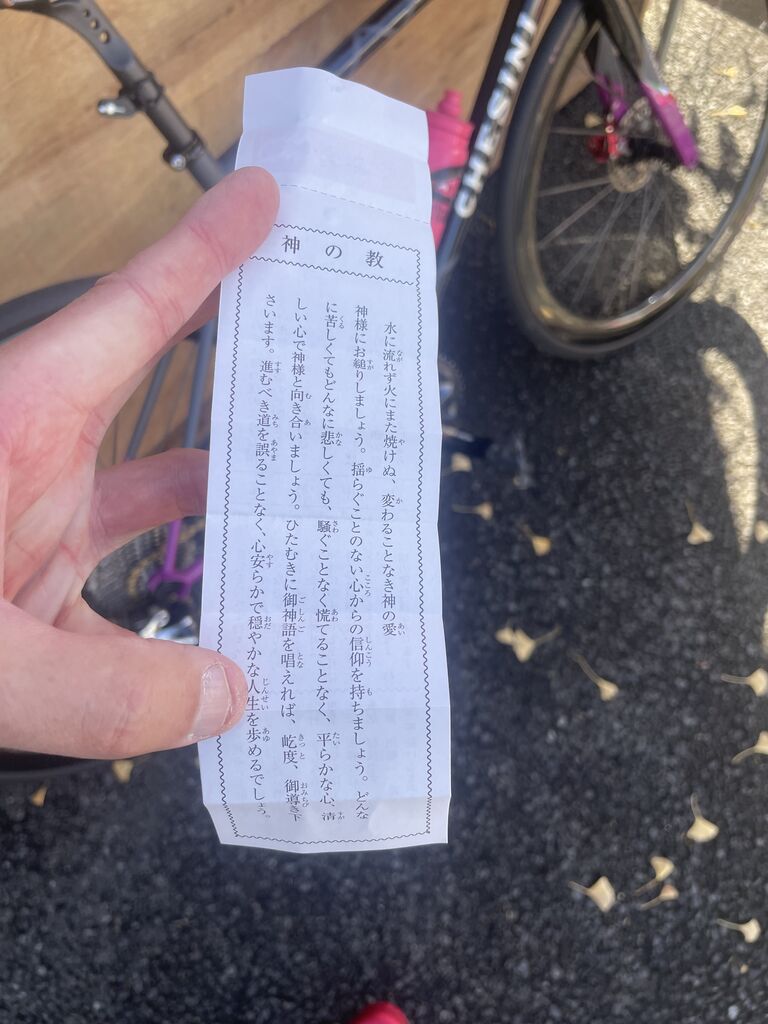 神の教
水に流れず火にまた焼けぬ、変わることなき神の愛
神様にお縋りしましょう。揺らぐことのない心からの信仰を持ちましょう。どんな
に苦しくてもどんなに悲しくても、騒ぐことなく慌てることなく、平らかな心、清
しい心で神様と向き合いましょう。ひたむきに御神語を唱えれば、屹度、御導き下
さいます。進むべき道を誤ることなく、心安らかで穏やかな人生を歩めるでしょう。
CHESINI